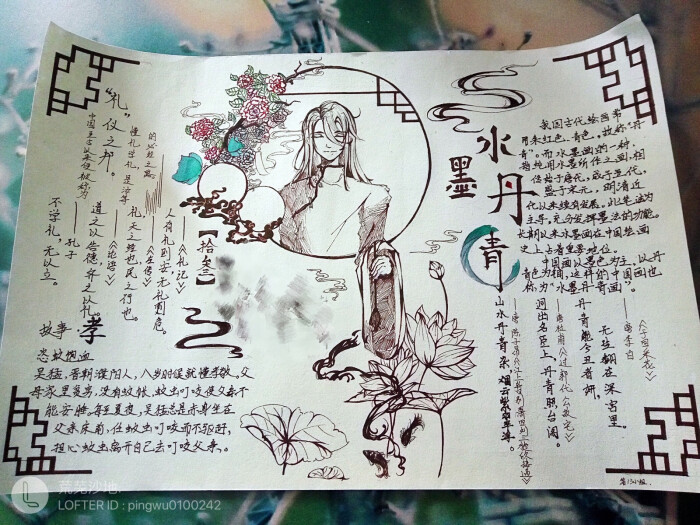 水墨
丹
青
我国古代绘画常
用朱红色、青色，故称“丹
青”。而水墨画的一种，
指纯用水墨所作之画，相
传始于唐代，成于五代，
盛于宋元，明清近
代以来续有发展。此笔法为
主导，充分发挥墨法的功能。
长期以来水墨画在中国绘画
史上占着重要地位。
中国画以墨色为主，以丹
青色为辅，这样的中国画也
称为“水墨丹青画”。
——唐李白
无乃翻在深宫里。
丹青能令丑者妍，
洞出名臣上，丹青照台阁。
山水丹青杂，烟云紫翠浮。
中国自古以来便被称为
“礼”仪之邦。
懂礼学礼，是治学
的必经之路
人有礼则安，无礼则危。
——《礼记》
礼，天之经也，民之行也。
——《左传》
道之以德，齐之以礼。
——《论语》
不学礼，无以立。
——孔子
【拾叁】
故事·孝
恣蚊饱血
吴猛，晋朝濮阳人，八岁时侯就懂孝敬，父
母家里贫穷，没有蚊帐，蚊虫叮咬使父亲不
能安睡。每至夏夜，吴猛总是赤身坐在
父亲床前，任蚊虫叮咬而不驱赶，
担心蚊虫离开自己去叮咬父亲。
荒芜沙地.
LOFTER ID : pingwu0100242